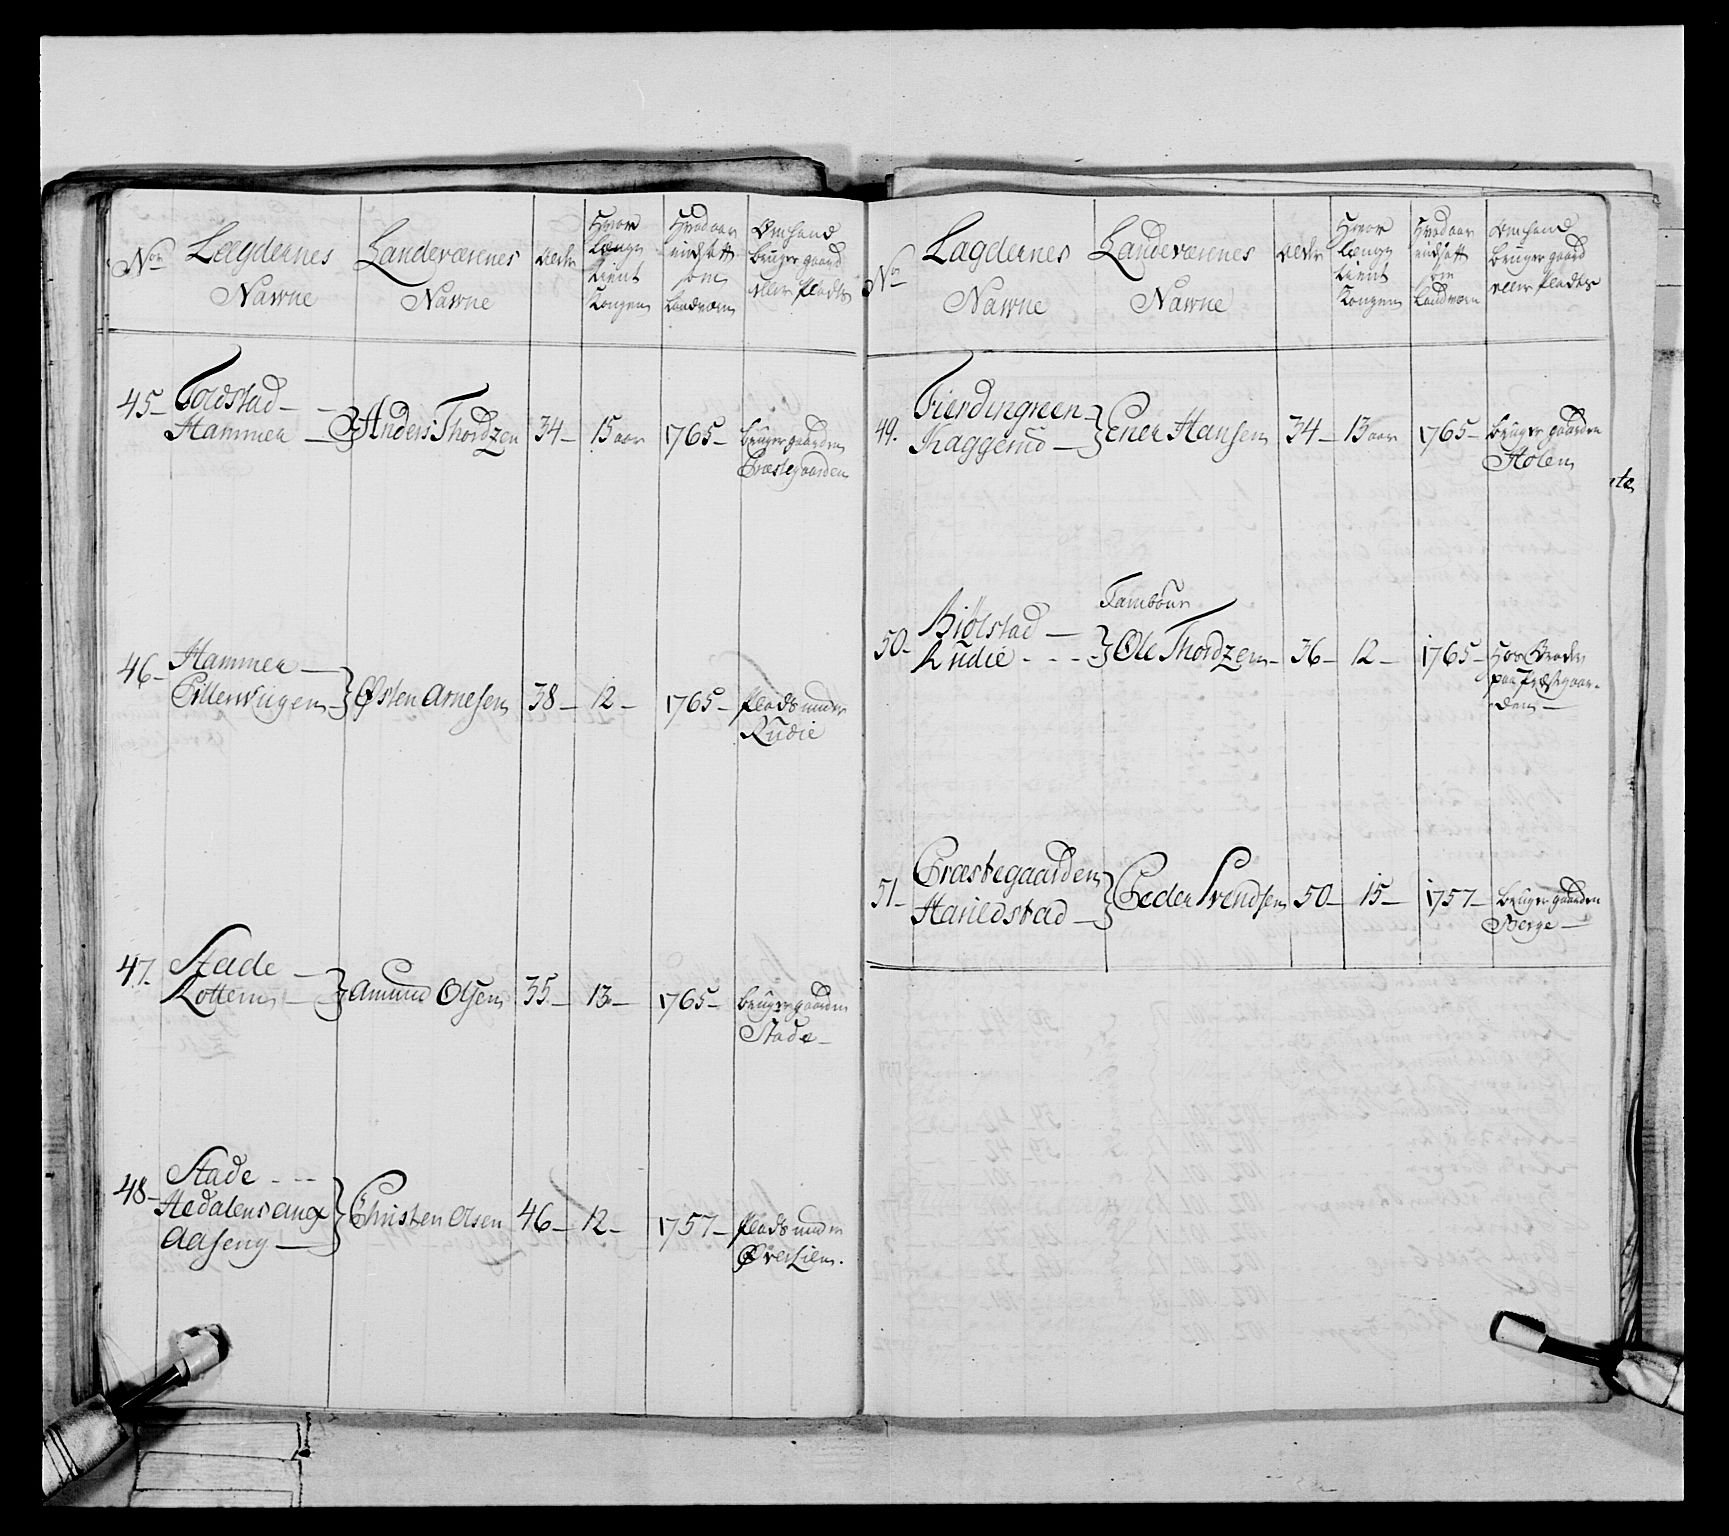 No
Lægdernes
Nawne
Landeværnes
Nawne
Alder
Hvor
længe
tient
Kongen
Hvad aar
indsatt
som
Landværn
Om hand
bruger gaard
eller Plads
45-
Toldstad
Hammer
Anders Thordzen
34-
15 aar
1765-
bruger gaarden
Præstegaarden
46-
Hammer
Pillerviigen
Østen Arnesen
38-
12-
1765-
Plads under
Rudie
47.
Stade
Kottem
Amund Olsen
35-
13-
1765-
bruger gaarden
Stade
48-
Stade
Hedalens anex
Aaseng
Christen Olsen
46-
12-
1757-
Plads under
Øverlien.
No
Lagdernes
Nawne
Landeværnes
Nawne
Alder
Hvor
længe
tient
Kongen
Hvad aar
indsatt
som
Landværn
Om hand
bruger gaard
eller Plads
49.
Fierdingreen
Kaggerud
Ener Hansen
34-
13 aar
1765-
bruger gaarden
Holen
50-
Biølstad
Rudie
Tambour
Ole Thordzen
36-
12-
1765-
Hos Broder
paa Præstgaar-
den
51-
Præstegaarden
Harildstad
Peder Svendsen
50-
15-
1757-
bruger gaarden
Berge